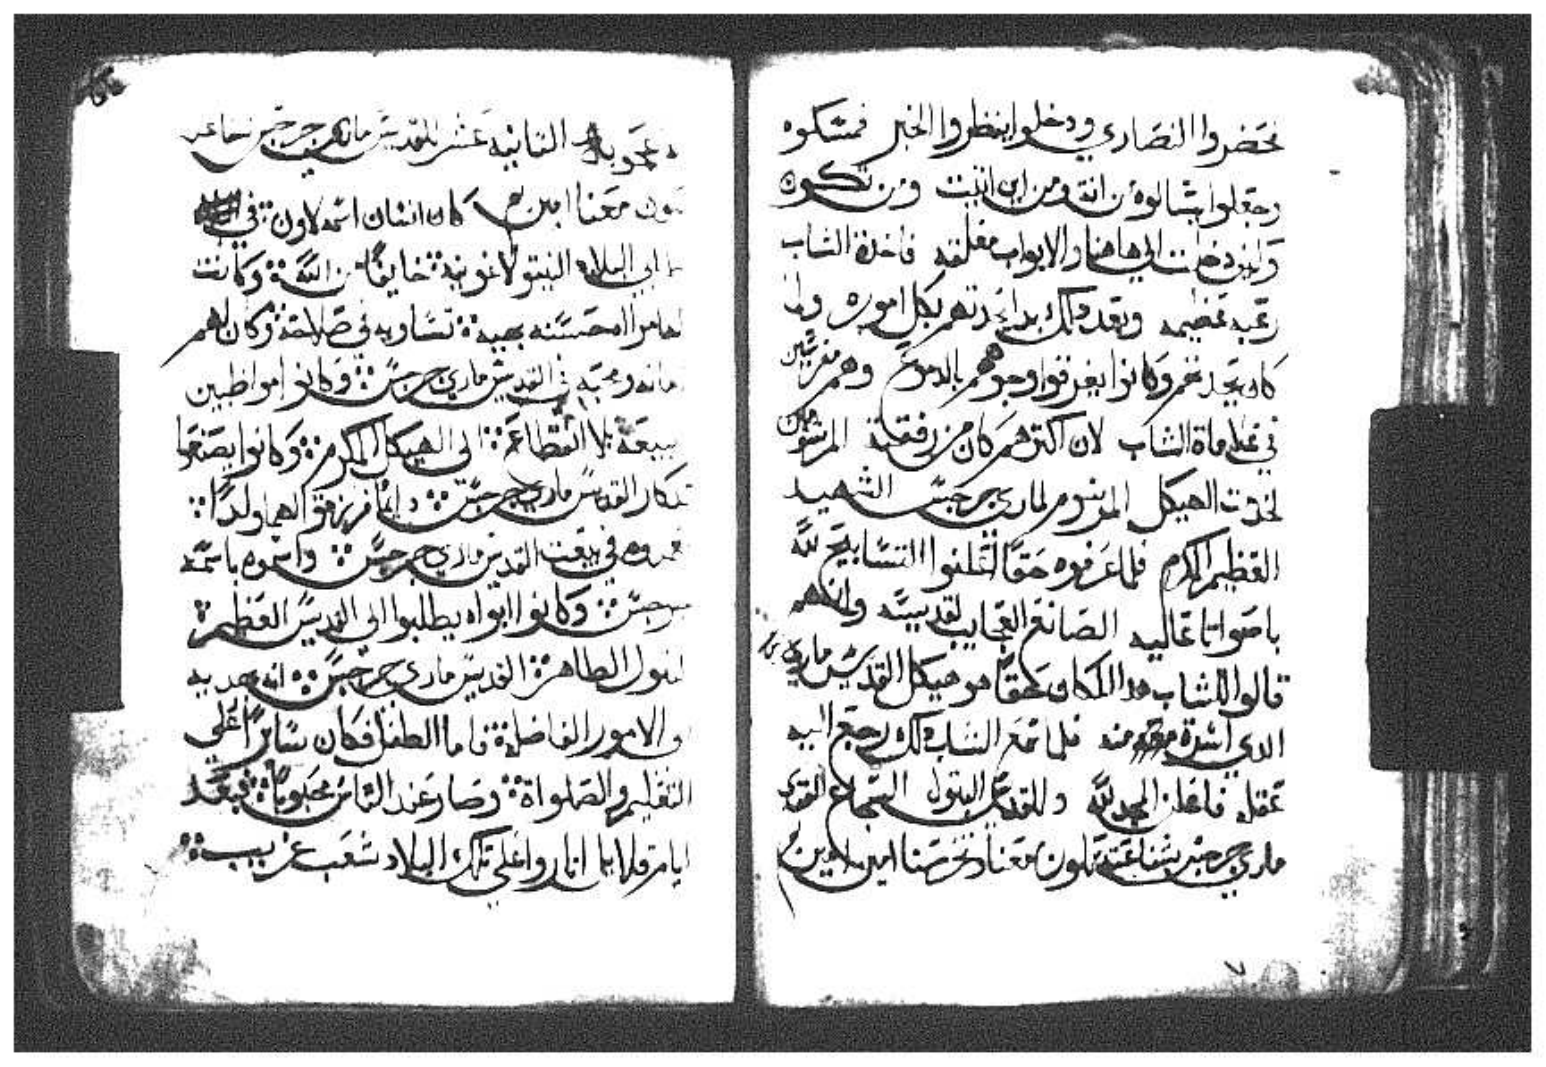 فحضروا النصارى ودخلوا ينظروا الخبر فمسكوه
وجعلوا يسالوه من انت ومن اين اتيت ومن تكون
واين دخلت الى هاهنا والابواب مغلقه فاخذة الشاب
رعبه عظيمه وبعد ذلك بدا يخبرهم بكل اموره ولما
كان يخبرهم وكانوا يغرقوا وجوههم بالدموع وهم مفرسين
في علامات الشاب لان اكترهم كان من رفقة المرسومين
لخدمت الهيكل المرسوم لماري جرجس الشهيد
العظيم المكرم فلما عرفوه حقا اعلنوا التسابيح لله
باصواتا عاليه الصانع العجايب لقديسيه وانهم
قالوا للشاب هذا المكان حقا هو هيكل القديس ماري
الدي منه فلما سمع الشاب ذلك رجع اليه
عقله فاعطا المجد لله وللقديس البتول الشجاع القدي
ماري جرجس شفاعته تكون معنا وتحرسنا امين امين
عجوبه التانيه عشر للقديس ماري جرجس شفاعته
تكون معنا امين كان انسان اسمه لاون في
البلاد خايفا من الله وكانت
امراه محسنه تساويه في صلاحة وكان لهم
امانه ومحبه في القديس ماري جرجس وكانوا مواظبين
بيعة بلا انقطاعة الى الهيكل المكرم وكانوا يصنعوا
تدكار القديس ماري جرجس دايما فرزقوا الهما ولدا
في بيعت القديس ماري جرجس واسموه باسمه
جرجس وكانوا ابواه يطلبوا الى القديس العظيم
البتول الطاهر القديس ماري جرجس انه يهديه
الى الامور الفاضلة فاما الطفل فكان سايرا على
التعليم والصلواة وصار عند الناس محبوبا فبعد
ايام قلايل اتاروا على تلك البلاد شعب غريب